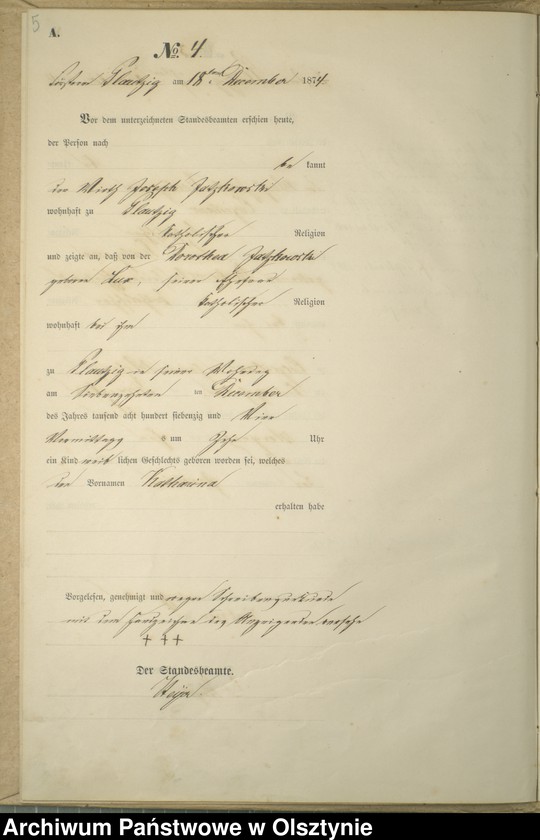 5
A.
No. 4.
Plautzig am 18ten December 1874.
Vor dem unterzeichneten Standesbeamten erschien heute,
der Person nach
be kannt
der Wirth Joseph
wohnhaft zu Plautzig
katholischer Religion
und zeigte an, daß von der Dorothea
geborne Lux, seiner Ehefrau
katholischer Religion
wohnhaft bei ihm
zu Plautzig in seiner Wohnung
am Siebenzehnten ten December
des Jahres tausend acht hundert siebenzig und Vier
Vormittags um Zehn Uhr
ein Kind weib lichen Geschlechts geboren worden sei, welches
den Vornamen Katharina
erhalten habe
Vorgelesen, genehmigt und wegen
mit dem Handzeichen des Anzeigenden versehen
+ + +
Der Standesbeamte.